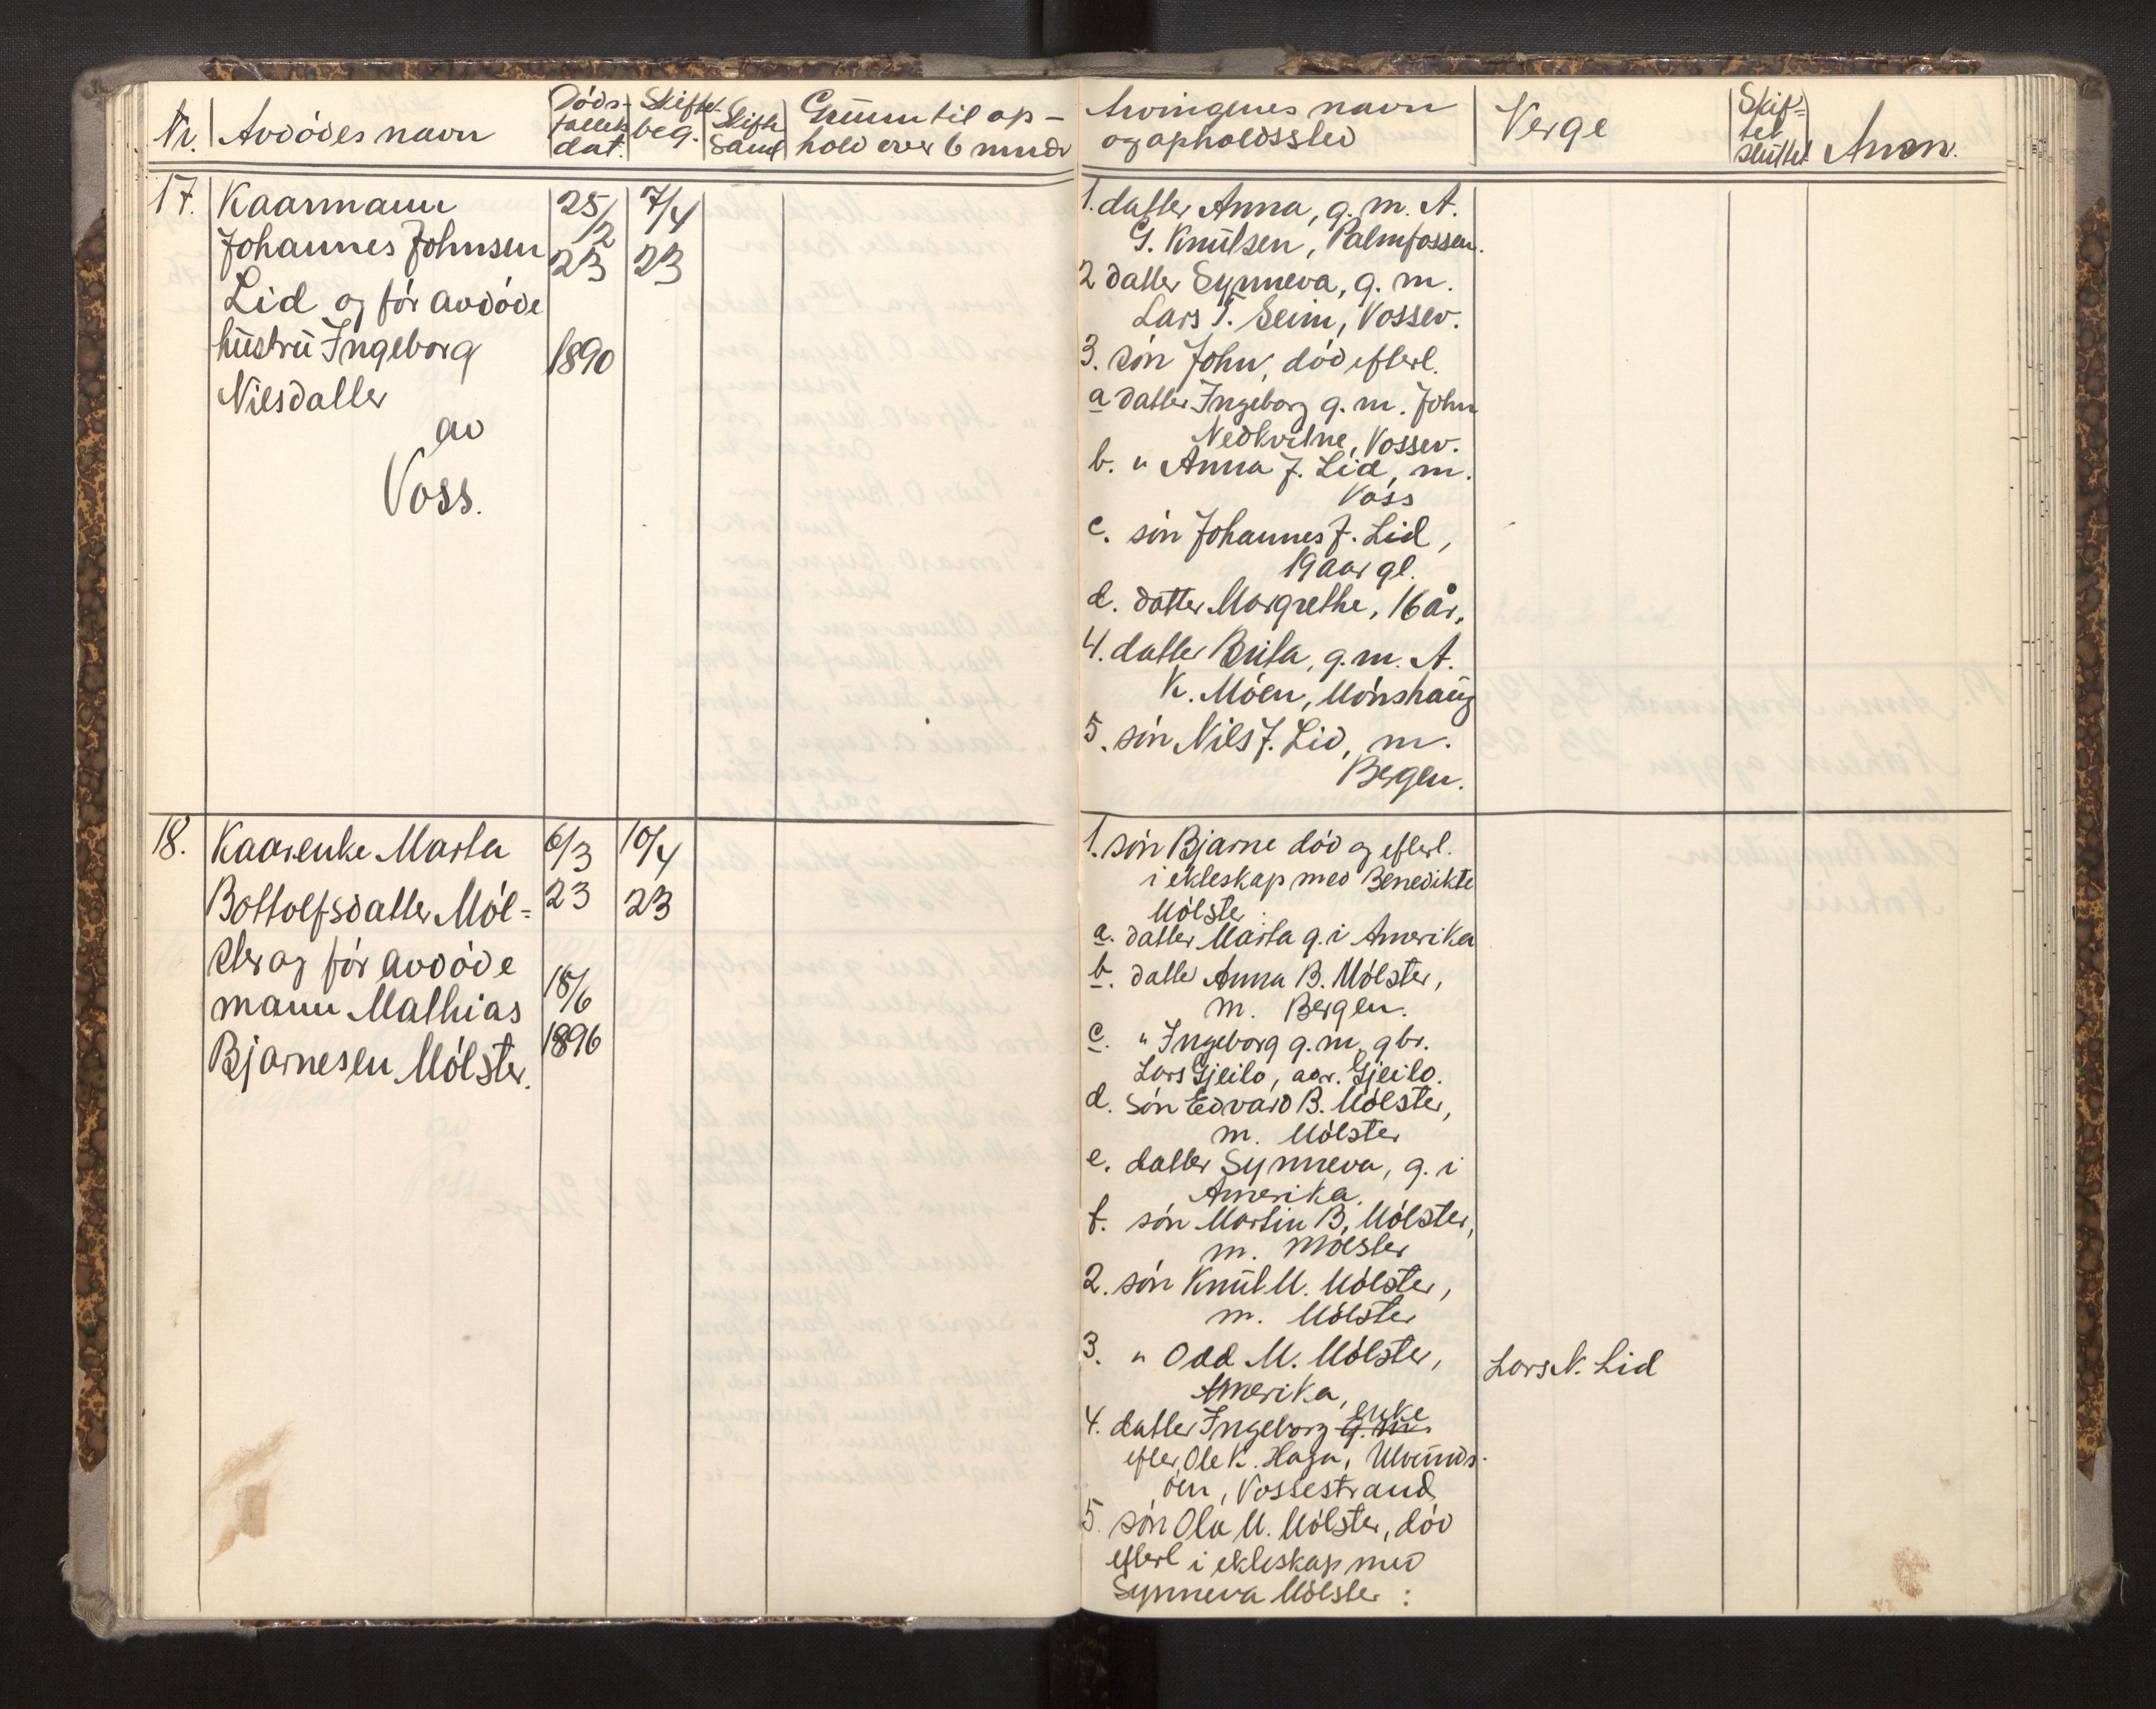 Nr.
Avdódes navn
Döds-
fallets
dat.
Skifte
beg.
Skifte
saml
Grunn til op-
hold over 6 mndr
Arvingnes navn
og opholdssted
Verge
Skif-
tet
sluttet
Anm.
17.
Kaarmann
Johannes Johnsen
Lid og för avdóde
hustrü Ingeborg
Nilsdatter
av
Voss.
25/2
23
1890
7/4
23
1. datter Anna, g. m. A.
G. Knütsen, Palmfossen.
2 datter Synneva, g. m.
Lars T. Seim, Vossev.
3. són John, död efterl.
a datter Ingeborg g. m. John
Nedkvitne, Vossev.
b. " Anna J. Lid, m.
Voss
c. són Johannes J. Lid,
19 aar gl.
d. datter Margrethe, 16 år.
4. datter Brita, g. m. A.
K. Móen, Mónshaüg
5. són Nils J. Lid, m.
Bergen.
18.
Kaarenke Marta
Bottolfsdatter Mól-
ster og för avdóde
mann Mathias
Bjarnesen Mólster.
6/3
23
18/6
1896
10/4
23
1. són Bjarne död og efterl.
i ekteskap med Benedikte
Mólster:
a. datter Marta g. i Amerika
b. datter Anna B. Mólster,
m. Bergen.
c. " Ingeborg g. m. gbr.
Lars Gjeilo, adr. Gjeilo.
d. són Edvard B. Mólster,
m. Mólster
e. datter Synneva, g. i
Amerika.
f. són Martin B. Mólster,
m. Mólster
2. són Knüt M. Mólster,
m. Mólster
3. " Odd M. Mólster,
Amerika,
Lars N. Lid
4. datter Ingeborg g. m. enke
efter Ole K. Haga, Ulvünds-
óen, Vossestrand
5. són Ola M. Mólster, död
efterl i ekteskap med
Synneva Mólster :